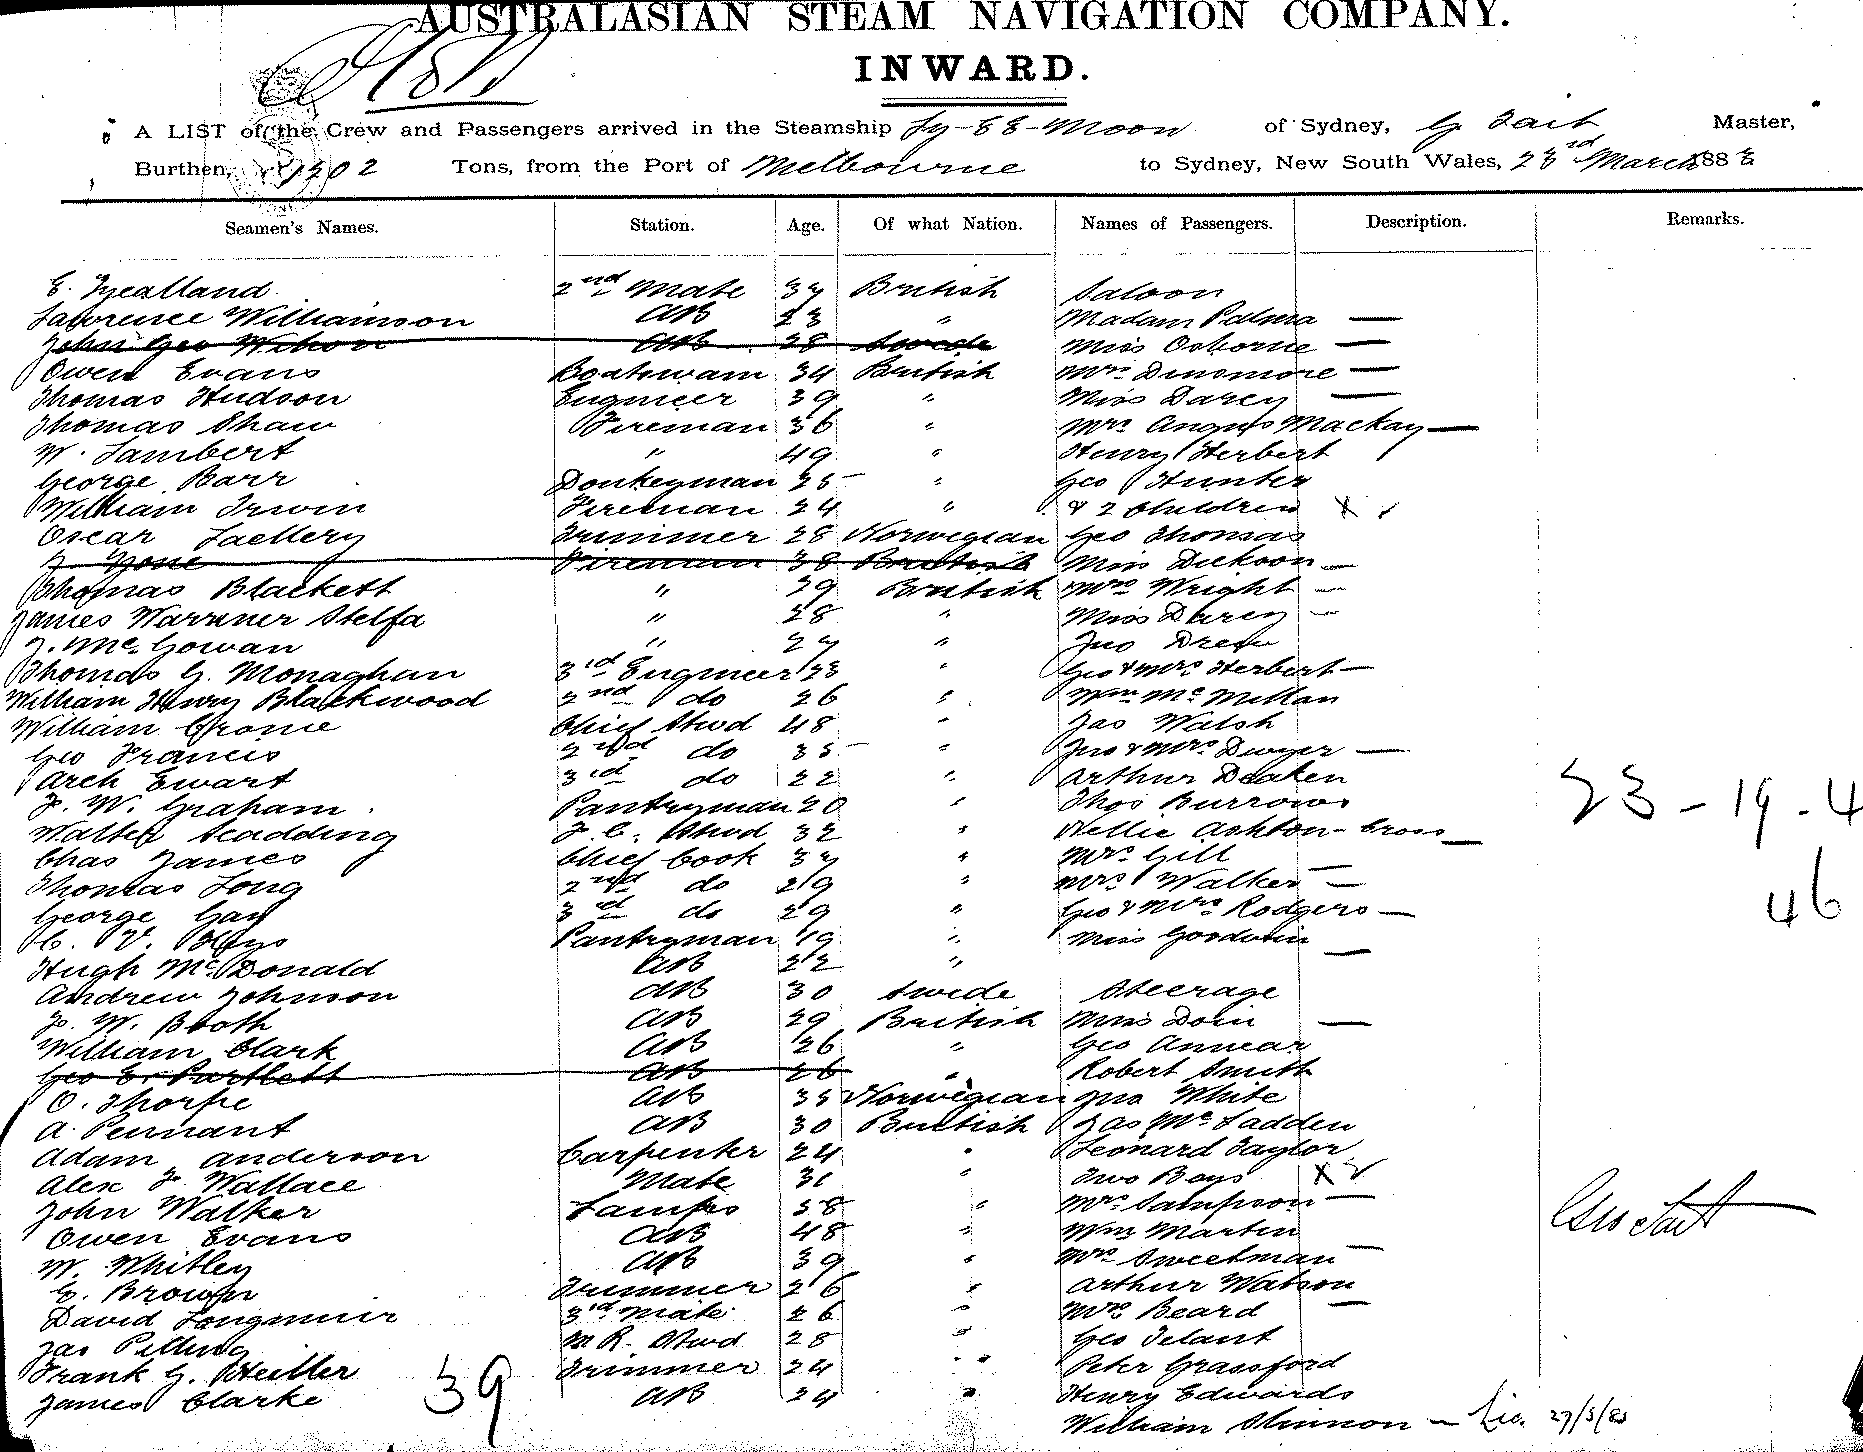 AUSTRALASIAN STEAM NAVIGATION COMPANY.
INWARD.
A LIST of the Crew and Passengers arrived in the Steamship Ly-EE-Moon of Sydney, G Tait Master,
Burthen, 1202 Tons, from the Port of Melbourne to Sydney, New South Wales, 23rd March 1883
Seamen's Names. Station. Age. Of what Nation. Names of Passengers. Description. Remarks.
2nd Mate British Saloon
Lawrence Williamson AB 23 " Madam Palma —
John Geo AB 28 Swede Miss Osborne —
Owen Evans Boatswain 34 British Mrs Dinsmore —
Thomas Hudson Engineer 39 " Miss Darcy —
Thomas Shaw Fireman 36 " Mrs Angus Mackay —
W. Lambert " 49 " Henry Herbert
George Barr Donkeyman 35 " Geo Hunter
William Irwin Fireman 24 " & 2 Children X
Oscar Trimmer 28 Norwegian Geo Thomas
Fireman 38 British Miss Dickson —
Thomas Blackett " 29 British Mrs Wright —
James Warriner Stelfa " 28 " Miss Darcy —
J. McGowan " 27 " Jno Drew
Thomas G. Monaghan 3rd Engineer 23 " Geo & Mrs Herbert —
William Henry Blackwood 2nd do 26 " Wm McMillan
William Cronie Chief Stwd 48 " Jas Walsh
Geo Francis 2nd do 35 " Jno & Mrs Dwyer —
Arch Ewart 3rd do 22 " Arthur Deaken
J. W. Graham Pantryman 20 " Thos Burrows
Walter Scadding F. C. Stwd 32 " Nellie Ashton-Cross —
Chas James Chief Cook 37 " Mrs Gill —
Thomas Long 2nd do 29 " Mrs Walker —
George Gay 3rd do 29 " Geo & Mrs Rodgers —
C. V. Pantryman 19 " Miss Goodwin —
Hugh McDonald AB 22 "
Andrew Johnson AB 30 Swede Steerage
J. W. Booth AB 29 British Miss Doin —
William Clark AB 26 " Geo Annear
Geo E. Partlett AB 26 " Robert Smith
O. Thorpe AB 35 Norwegian Jno White
A. Pennant AB 30 British Jas McFadden
Adam Anderson Carpenter 24 " Leonard Taylor
Alex F. Wallace Mate 31 " Two Boys X 2
John Walker Lamps 58 " Mrs Sampson —
Owen Evans AB 48 " Wm Martin
W. Whitley AB 39 " Mrs Sweetman —
E. Brown Trimmer 26 " Arthur Watson
David Longmuir 3rd Mate 26 " Mrs Beard —
Jas Pilling M.R. Stwd 28 " Geo Telant
Frank G. Trimmer 24 " Peter Grassford
James Clarke AB 24 " Henry Edwards
William Shinnon —
39
23 - 19 - 4
46
Geo Tait
27/3/83